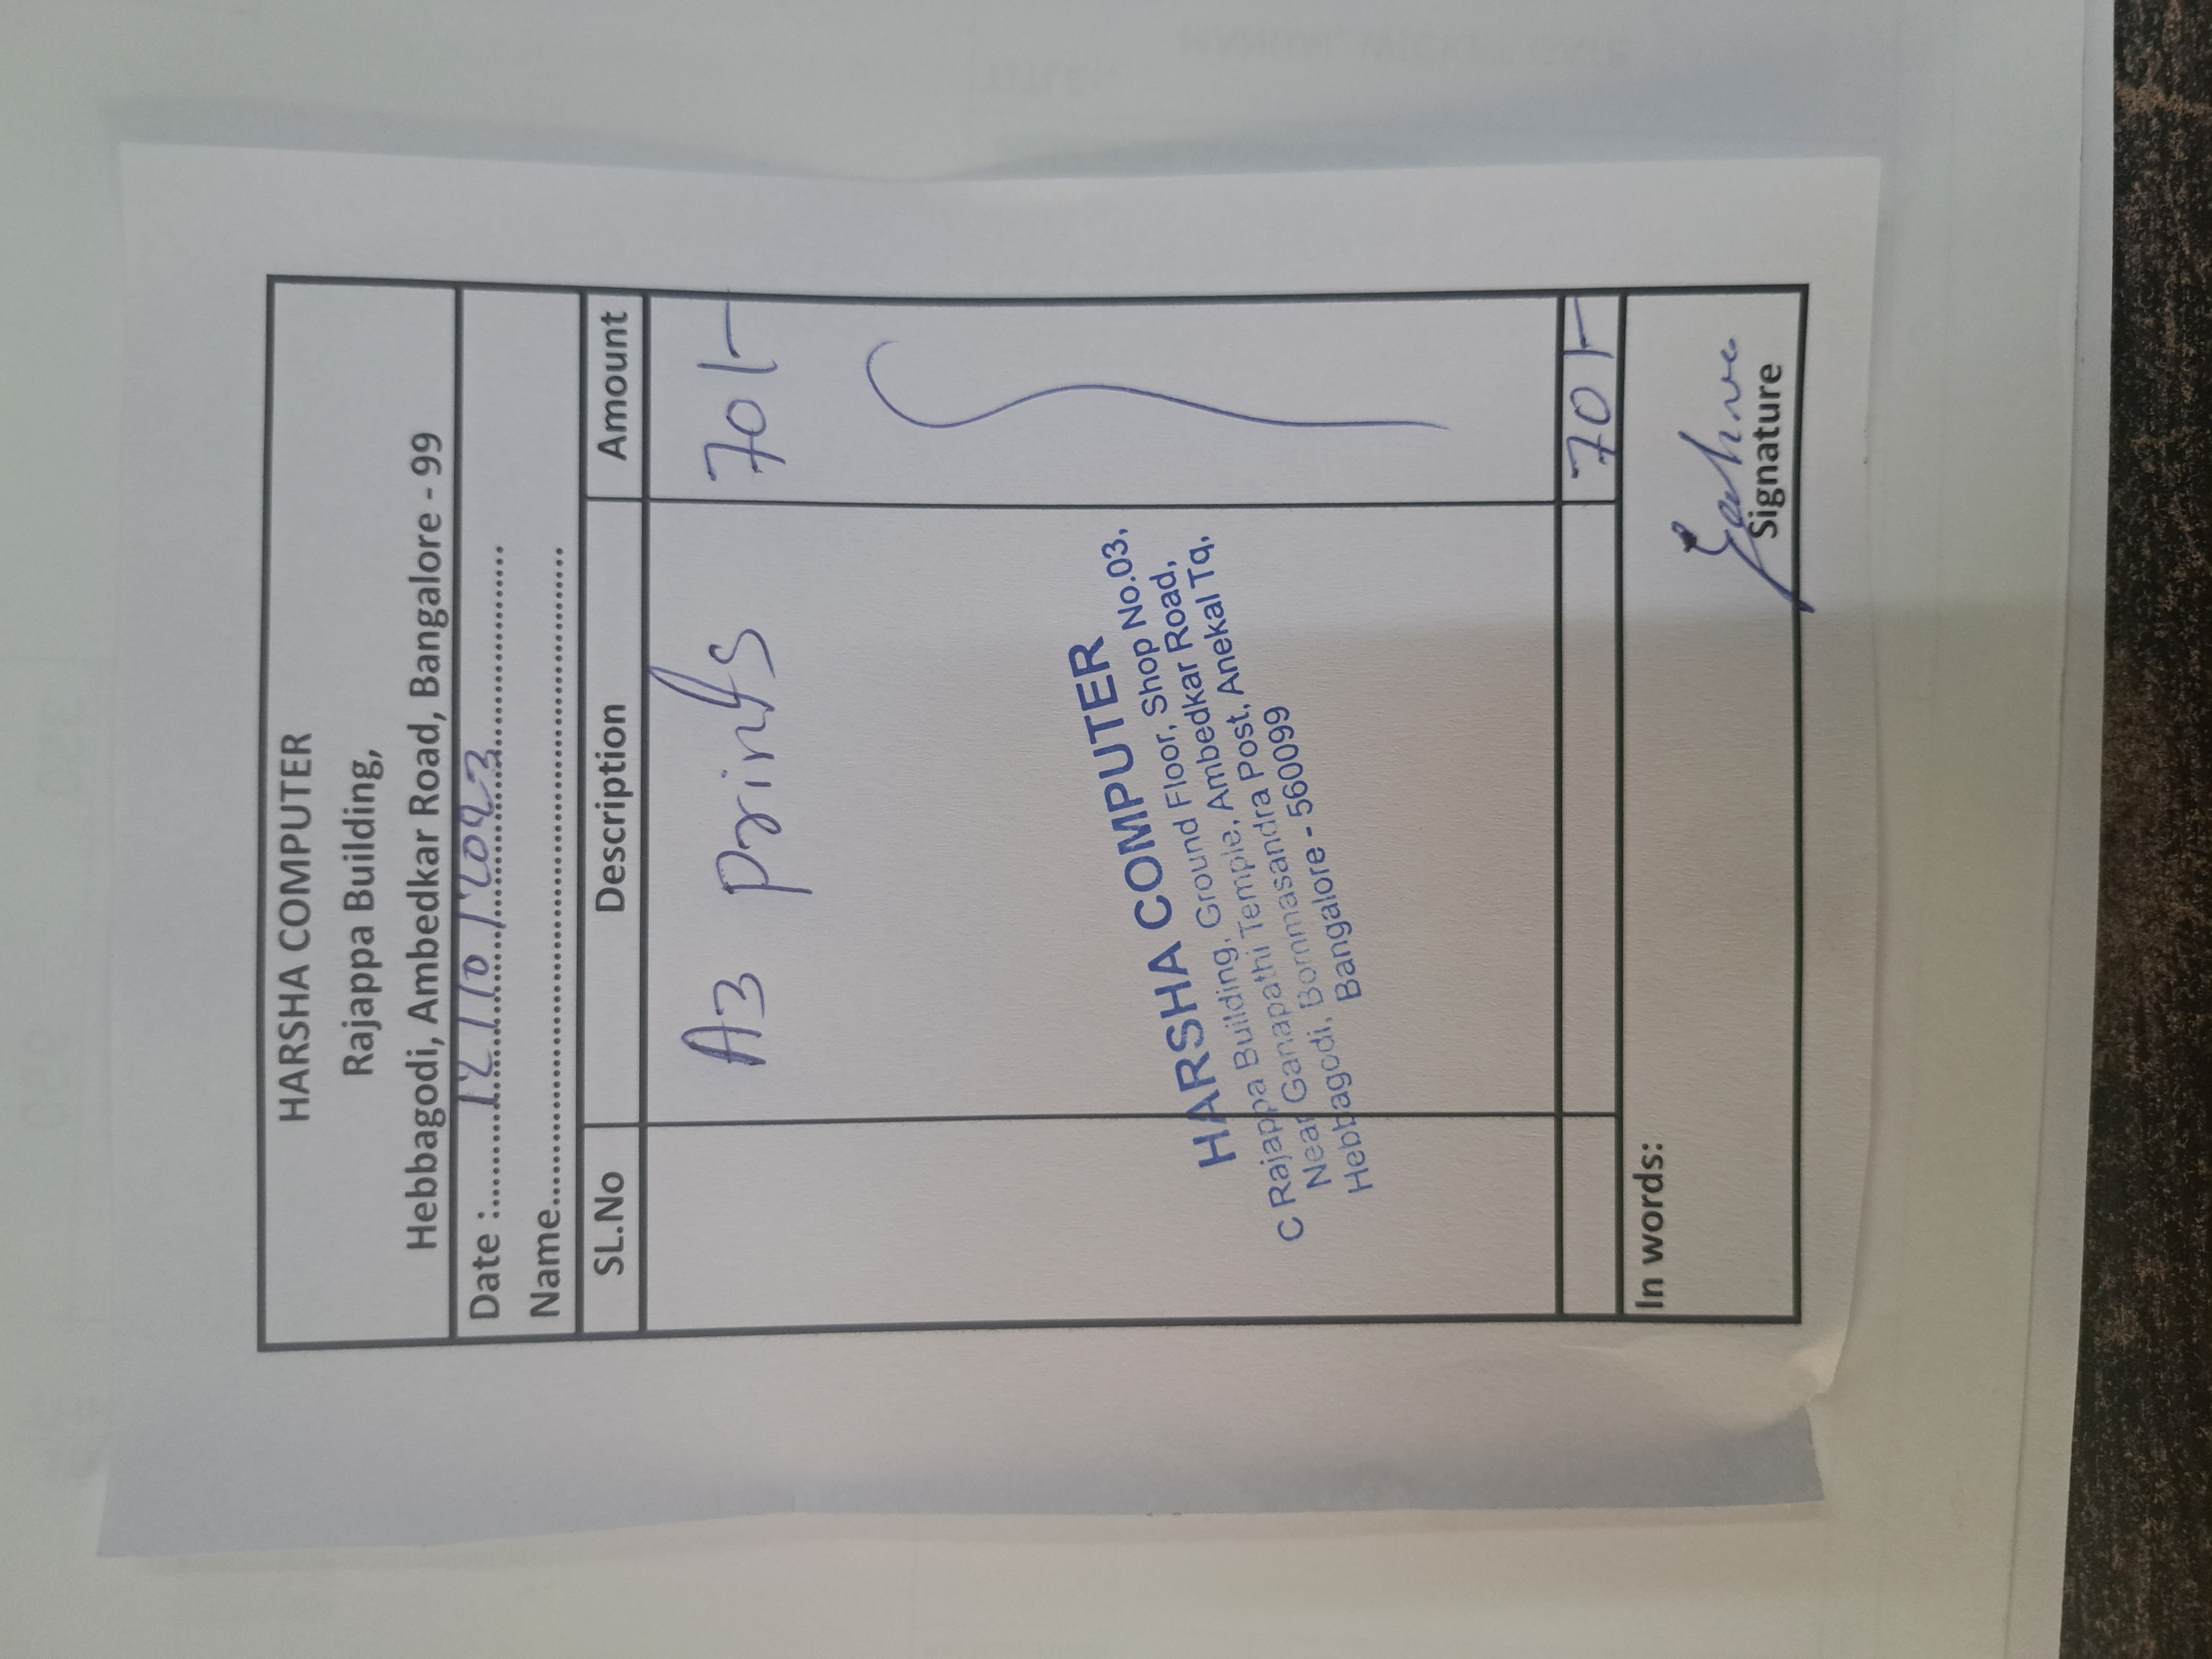 HARSHA COMPUTER
Rajappa Building,
Hebbagodi, Ambedkar Road, Bangalore - 99
Date :.......12/10/2023.......
Name.......
SL.No Description Amount
A3 prints 70/-
HARSHA COMPUTER
C Rajappa Building, Ground Floor, Shop No.03,
Near Ganapathi Temple, Ambedkar Road,
Hebbagodi, Bommasandra Post, Anekal Tq,
Bangalore - 560099
70/-
In words:
Signature